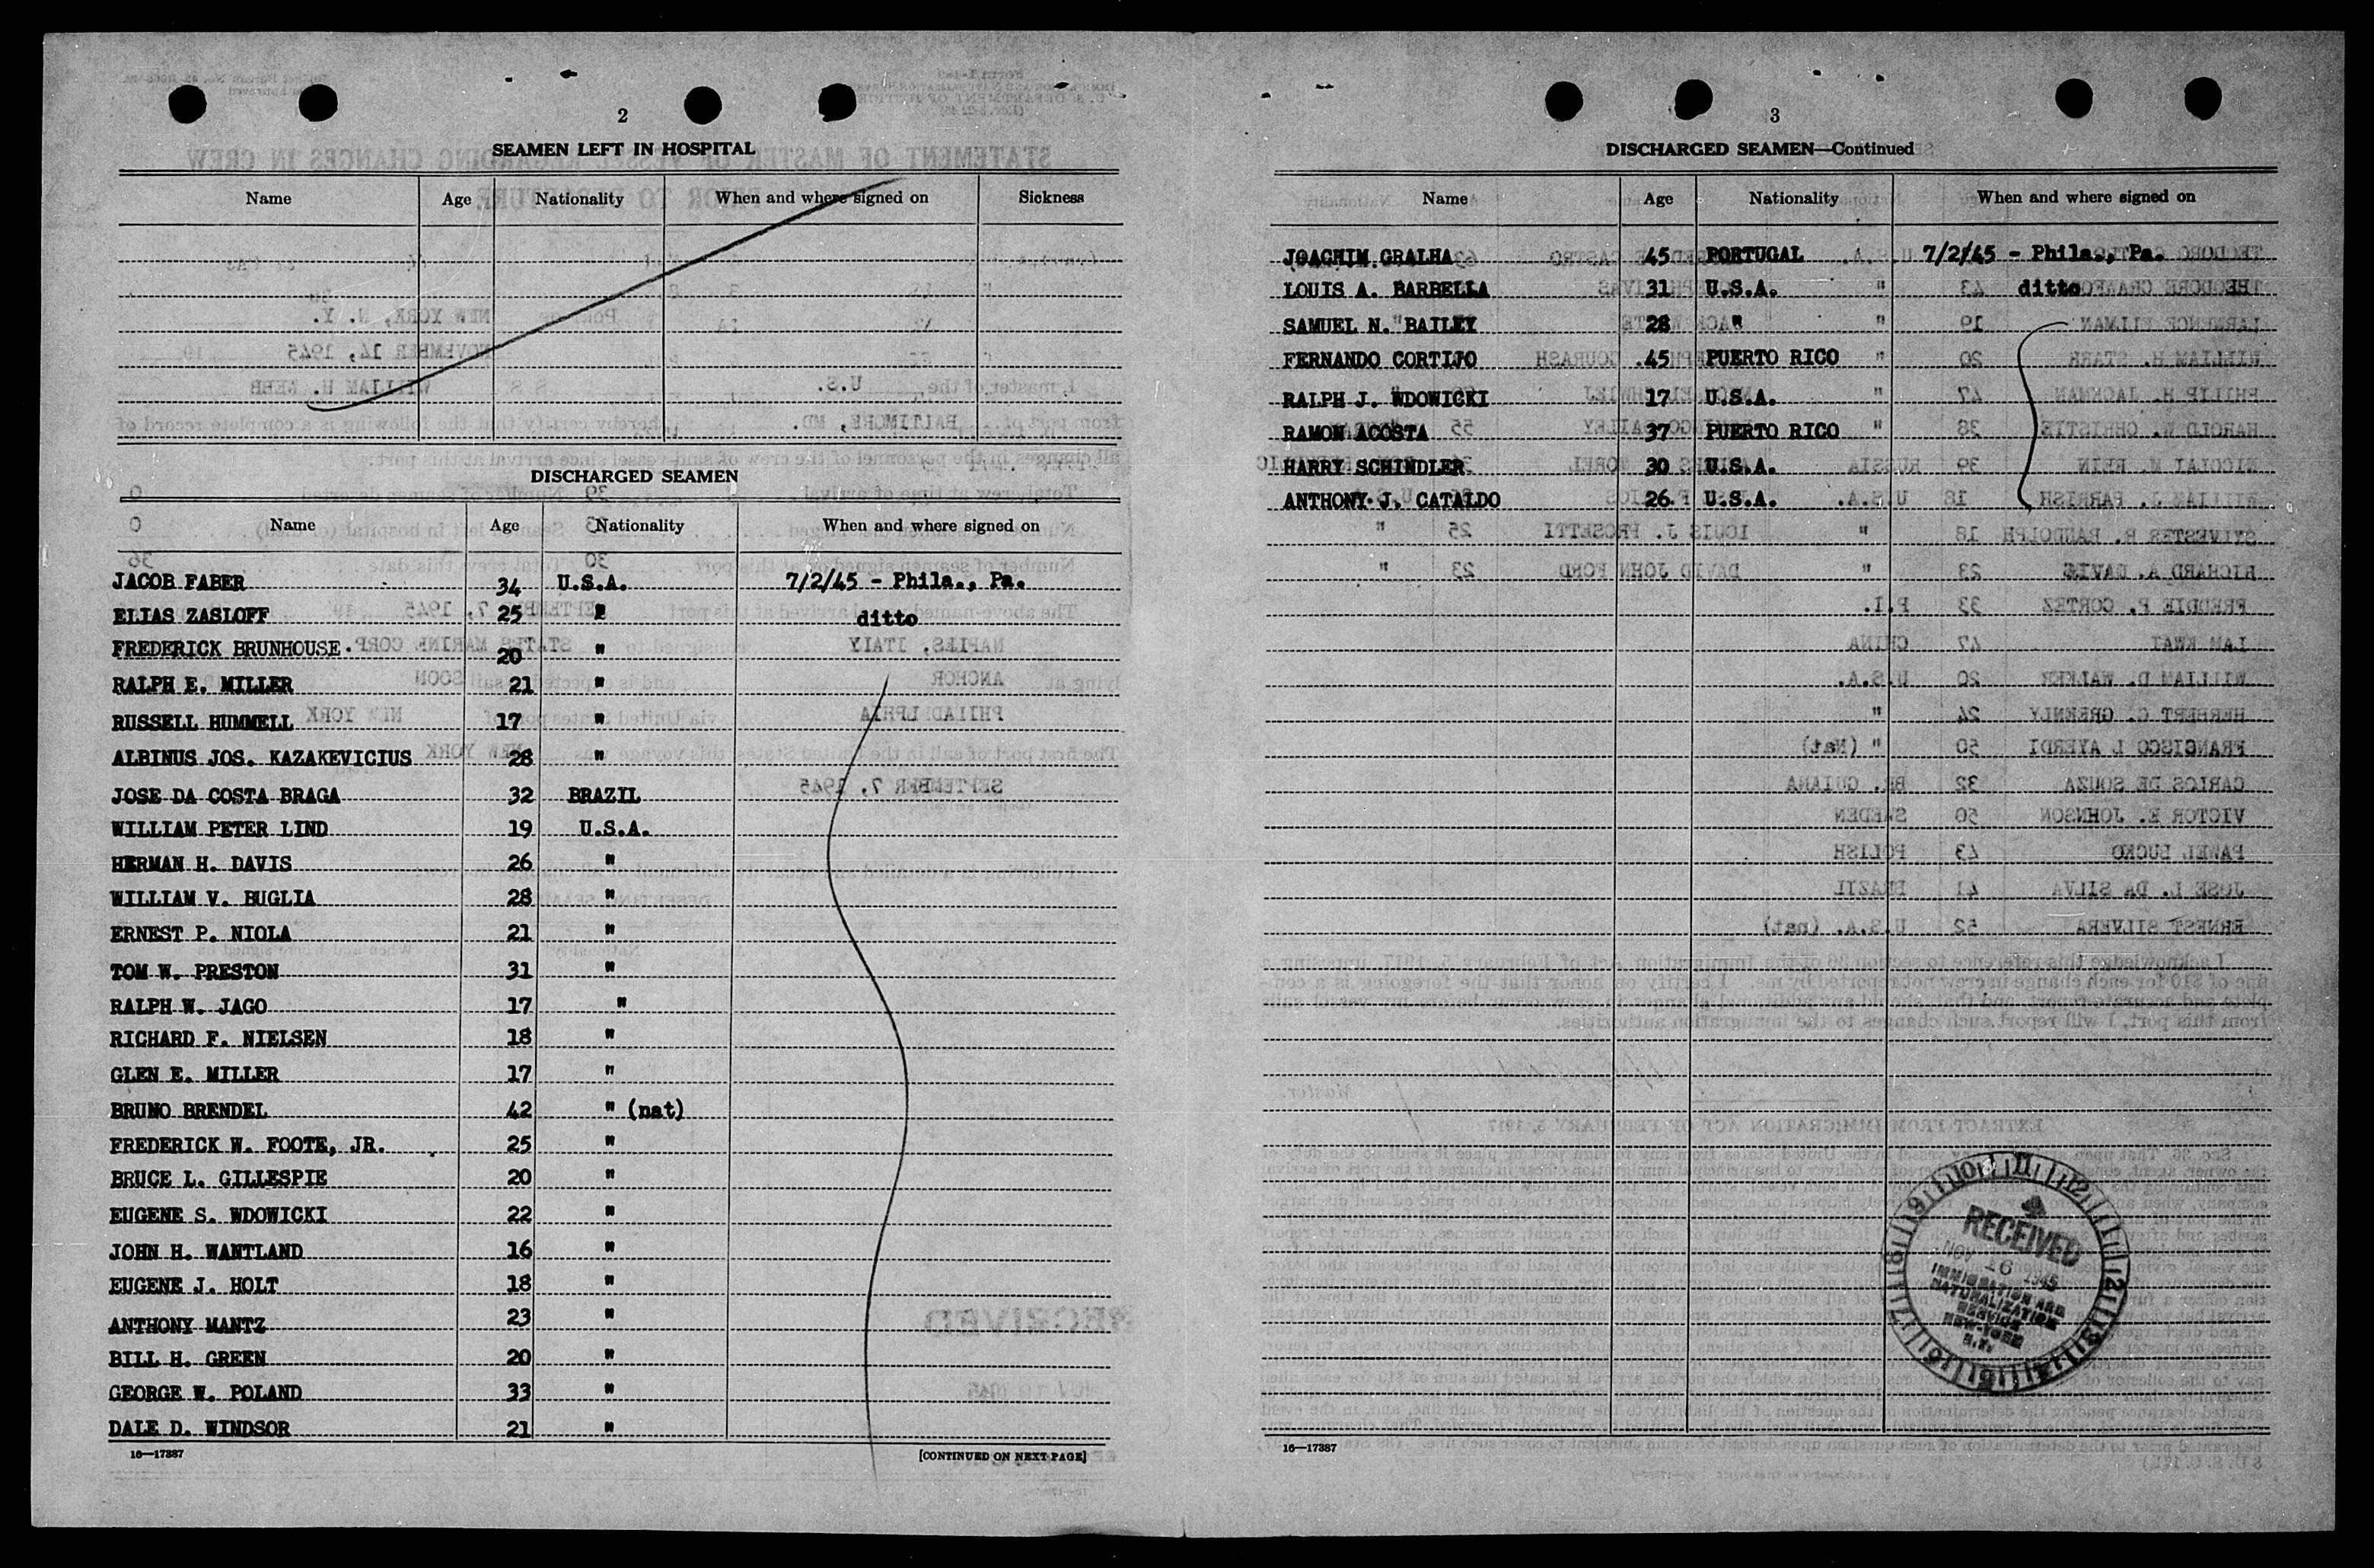 2
SEAMEN LEFT IN HOSPITAL
Name Age Nationality When and where signed on Sickness
DISCHARGED SEAMEN
Name Age Nationality When and where signed on
JACOB FABER 34 U.S.A. 7/2/45 - Phila., Pa.
ELIAS ZASLOFF 25 " ditto
FREDERICK BRUNHOUSE. 20 "
RALPH E. MILLER 21 "
RUSSELL HUMMELL 17 "
ALBINUS JOS. KAZAKEVICIUS 28 "
JOSE DA COSTA BRAGA 32 BRAZIL
WILLIAM PETER LIND 19 U.S.A.
HERMAN H. DAVIS 26 "
WILLIAM V. BUGLIA 28 "
ERNEST P. NIOLA 21 "
TOM W. PRESTON 31 "
RALPH W. JAGO 17 "
RICHARD F. NIELSEN 18 "
GLEN E. MILLER 17 "
BRUNO BRENDEL 42 " (nat)
FREDERICK W. FOOTE, JR. 25 "
BRUCE L. GILLESPIE 20 "
EUGENE S. WDOWICKI 22 "
JOHN H. WANTLAND 16 "
EUGENE J. HOLT 18 "
ANTHONY MANTZ 23 "
BILL H. GREEN 20 "
GEORGE W. POLAND 33 "
DALE D. WINDSOR 21 "
16—17387 [CONTINUED ON NEXT PAGE]
3
DISCHARGED SEAMEN—Continued
Name Age Nationality When and where signed on
JOACHIM GRALHA 45 PORTUGAL 7/2/45 - Phila., Pa.
LOUIS A. BARBELLA 31 U.S.A. ditto
SAMUEL N. BAILEY 28 "
FERNANDO CORTIJO 45 PUERTO RICO
RALPH J. WDOWICKI 17 U.S.A.
RAMON ACOSTA 37 PUERTO RICO
HARRY SCHINDLER 30 U.S.A.
ANTHONY J. CATALDO 26 U.S.A.
RECEIVED
NOV 26 1945
IMMIGRATION AND
NATURALIZATION
SERVICE
NEW YORK
N.Y.
16—17387